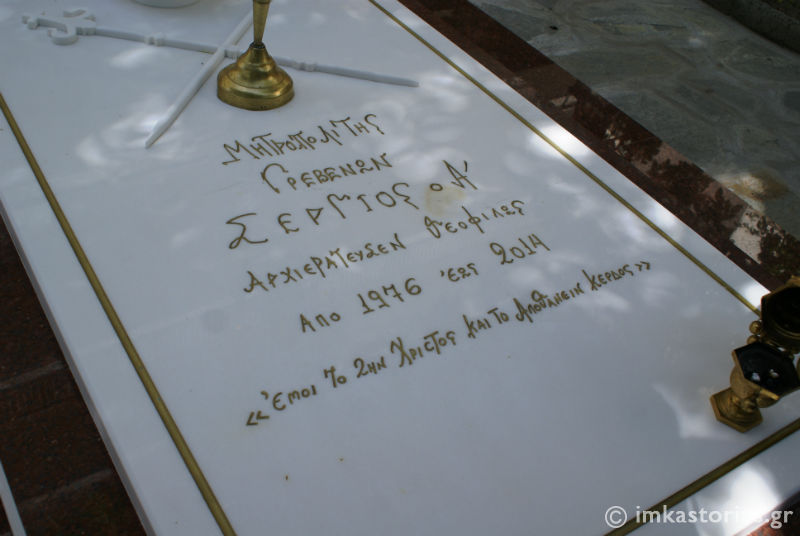 Μητροπολίτης
Γρεβενών
Σέργιος ο Α'
Αρχιεράτευσεν θεοφιλώς
Από 1976 έως 2014
«Έμοι το ζην Χριστός και το αποθανείν κέρδος»
© imkastorias.gr